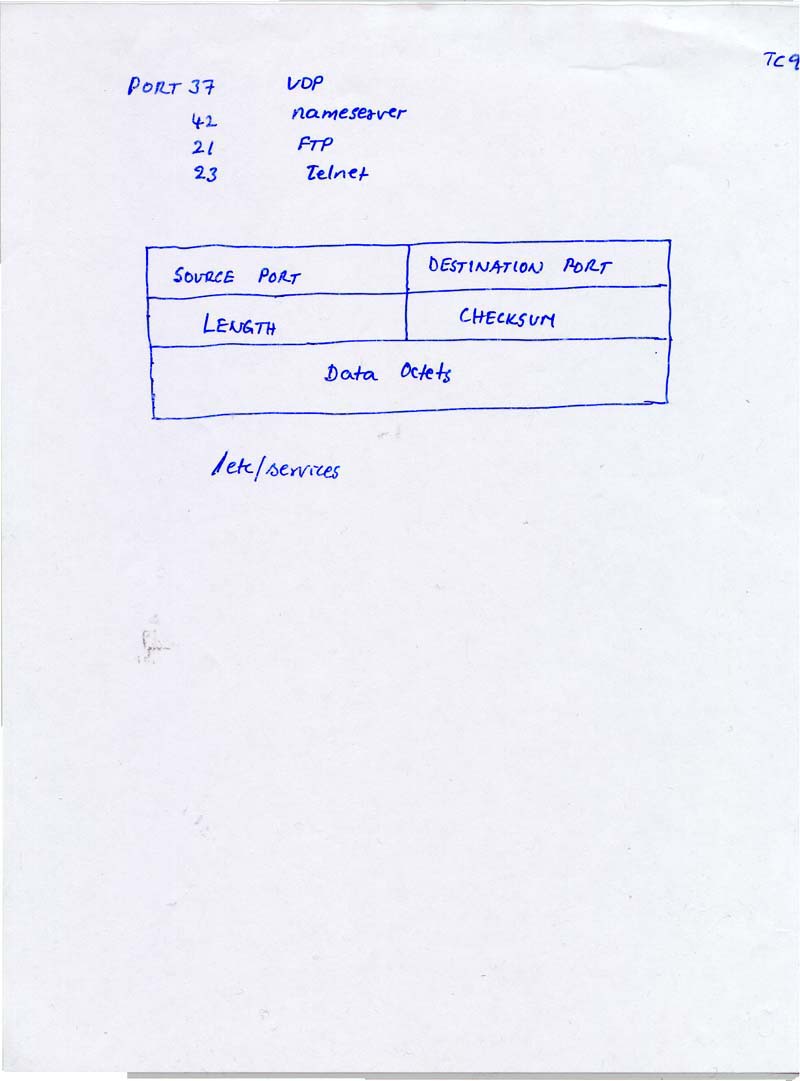 TC9
PORT 37 UDP
42 nameserver
21 FTP
23 Telnet
SOURCE PORT DESTINATION PORT
LENGTH CHECKSUM
Data Octets
/etc/services